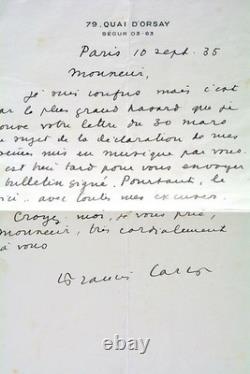 79, QUAI D'ORSAY
SÉGUR 03-63
Paris 10 sept. 35
Monsieur,
Je suis confus mais c'est
par le plus grand hasard que j'ai
trouve votre lettre du 30 mars
au sujet de la déclaration de mes
poèmes mis en musique par vous.
est bien tard pour vous envoyer
bulletin signé. Pourtant, le
ici.. avec toutes mes excuses.
Croyez-moi, je vous prie,
Monsieur, très cordialement
à vous
Francis Carco